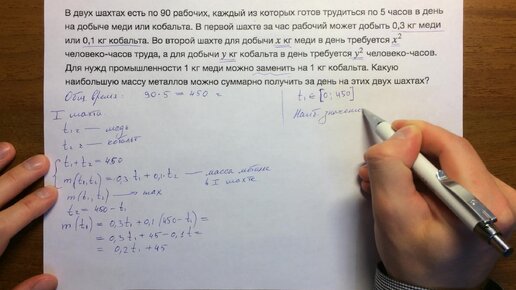 В двух шахтах есть по 90 рабочих, каждый из которых готов трудиться по 5 часов в день
на добыче меди или кобальта. В первой шахте за час рабочий может добыть 0,3 кг меди
или 0,1 кг кобальта. Во второй шахте для добычи x кг меди в день требуется x²
человеко-часов труда, а для добычи y кг кобальта в день требуется y² человеко-часов.
Для нужд промышленности 1 кг меди можно заменить на 1 кг кобальта. Какую
наибольшую массу металлов можно суммарно получить за день на этих двух шахтах?
Общ. время: 90·5 = 450 ч
I шахта
t₁ ч — медь
t₂ ч — кобальт
t₁ + t₂ = 450
m(t₁,t₂) = 0,3t₁ + 0,1·t₂ — масса металла
в I шахте
m(t₁,t₂) — max
t₂ = 450 - t₁
m(t₁) = 0,3t₁ + 0,1(450 - t₁) =
= 0,3t₁ + 45 - 0,1t =
= 0,2t₁ + 45
t₁ ∈ [0; 450]
Наиб значение